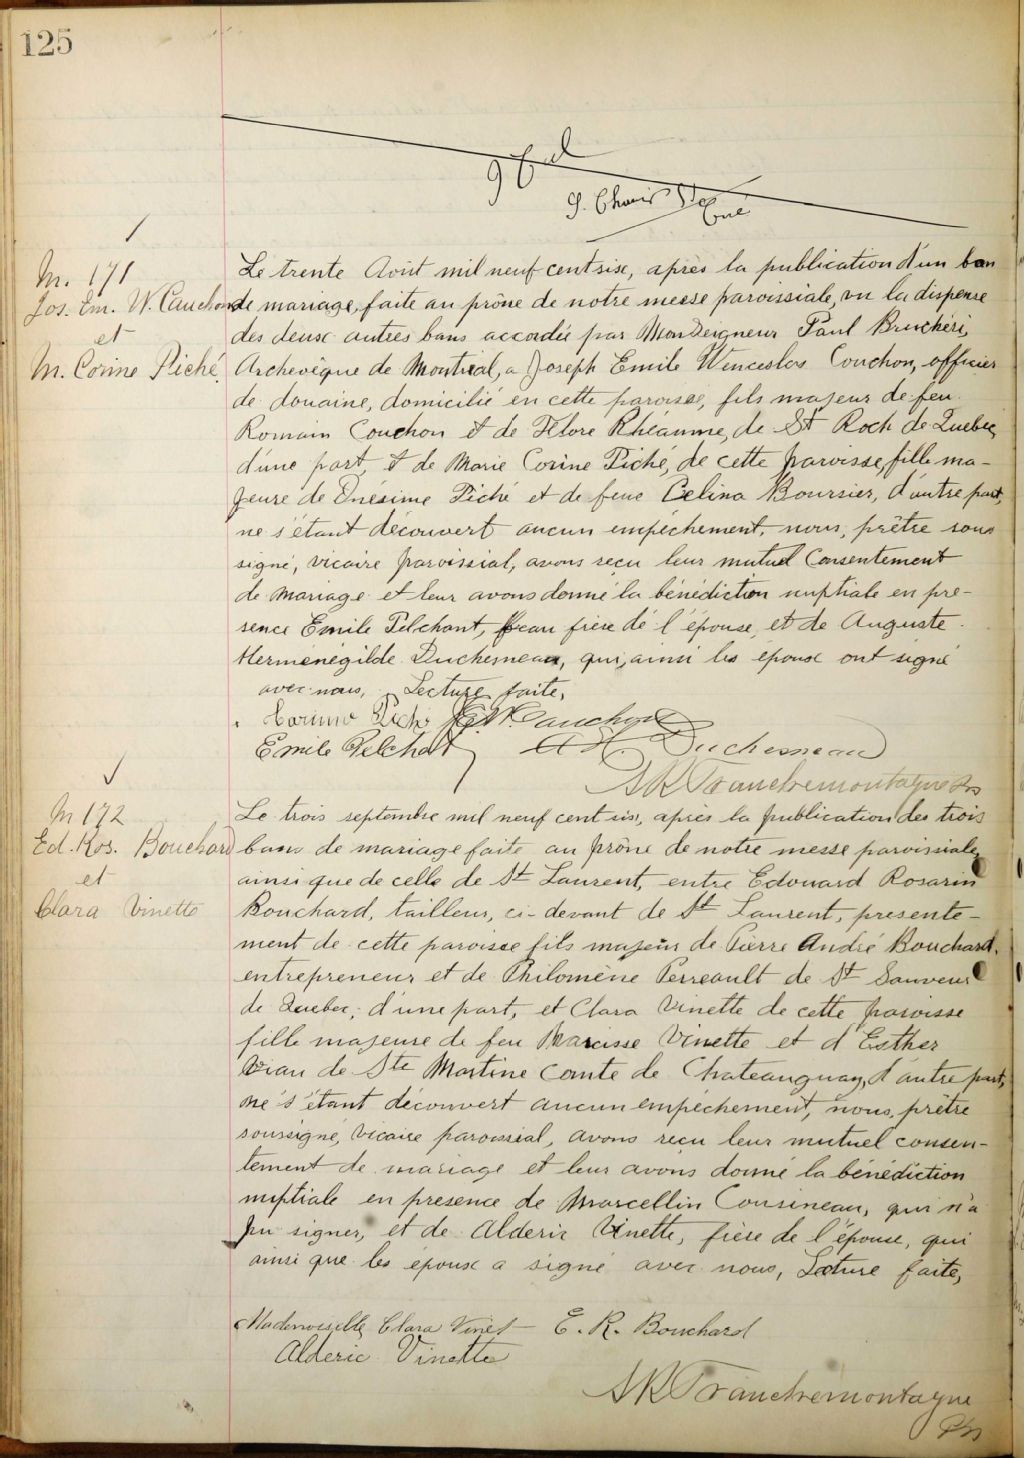 125
M. 171
Jos. Em. W. Cauchon
et
M. Corine Piché
Le trente Août mil neuf cent six, après la publication d'un ban
de mariage, faite au prône de notre messe paroissiale, vu la dispense
des deux autres bans accordée par Monseigneur Paul Bruchési,
Archevêque de Montréal, a Joseph Emile Wenceslas Couchon, officier
de douaine, domicilié en cette paroisse, fils majeur de feu
Romain Couchon et de Flore Rhéaume, de St Roch de Quebec,
d'une part, et de Marie Corine Piché, de cette paroisse, fille ma-
jeure de Onésime Piché et de feue Celina Boursier, d'autre part,
ne s'étant découvert aucun empêchement, nous, prêtre sous
signé, vicaire paroissial, avons reçu leur mutuel consentement
de mariage et leur avons donné la bénédiction nuptiale en pre-
sence Emile Pelchant, beau frère de l'épouse, et de Auguste
Herménégilde Duchesneau, qui, ainsi les epoux ont signé
avec nous, Lecture faite,
Corinne Piché J.E.W. Cauchon
Emile Pelchat A H. Duchesneau
A R Tranchemontagne Ptr
M 172
Ed. Ros. Bouchard
et
Clara Vinette
Le trois septembre mil neuf cent six, après la publication des trois
bans de mariage faite au prône de notre messe paroissiale,
ainsi que de celle de St Laurent, entre Edouard Rosarin
Bouchard, tailleur, ci-devant de St Laurent, presente-
ment de cette paroisse fils majeur de Pierre André Bouchard,
entrepreneur et de Philomène Perreault de St Sauveur
de Quebec, d'une part, et Clara Vinette de cette paroisse
fille majeure de feu Narcisse Vinette et d'Esther
Viau de Ste Martine Comte de Chateauguay, d'autre part,
ne s'étant découvert aucun empêchement, nous, prêtre
soussigné, vicaire paroissial, avons reçu leur mutuel consen-
tement de mariage et leur avons donné la bénédiction
nuptiale en presence de Marcellin Cousineau, qui n'a
pu signer, et de Alderic Vinette, frère de l'épouse, qui
ainsi que les époux a signé avec nous, Lecture faite,
Mademoiselle Clara Vinet E. R. Bouchard
Alderic Vinette
A R Tranchemontagne
Ptr